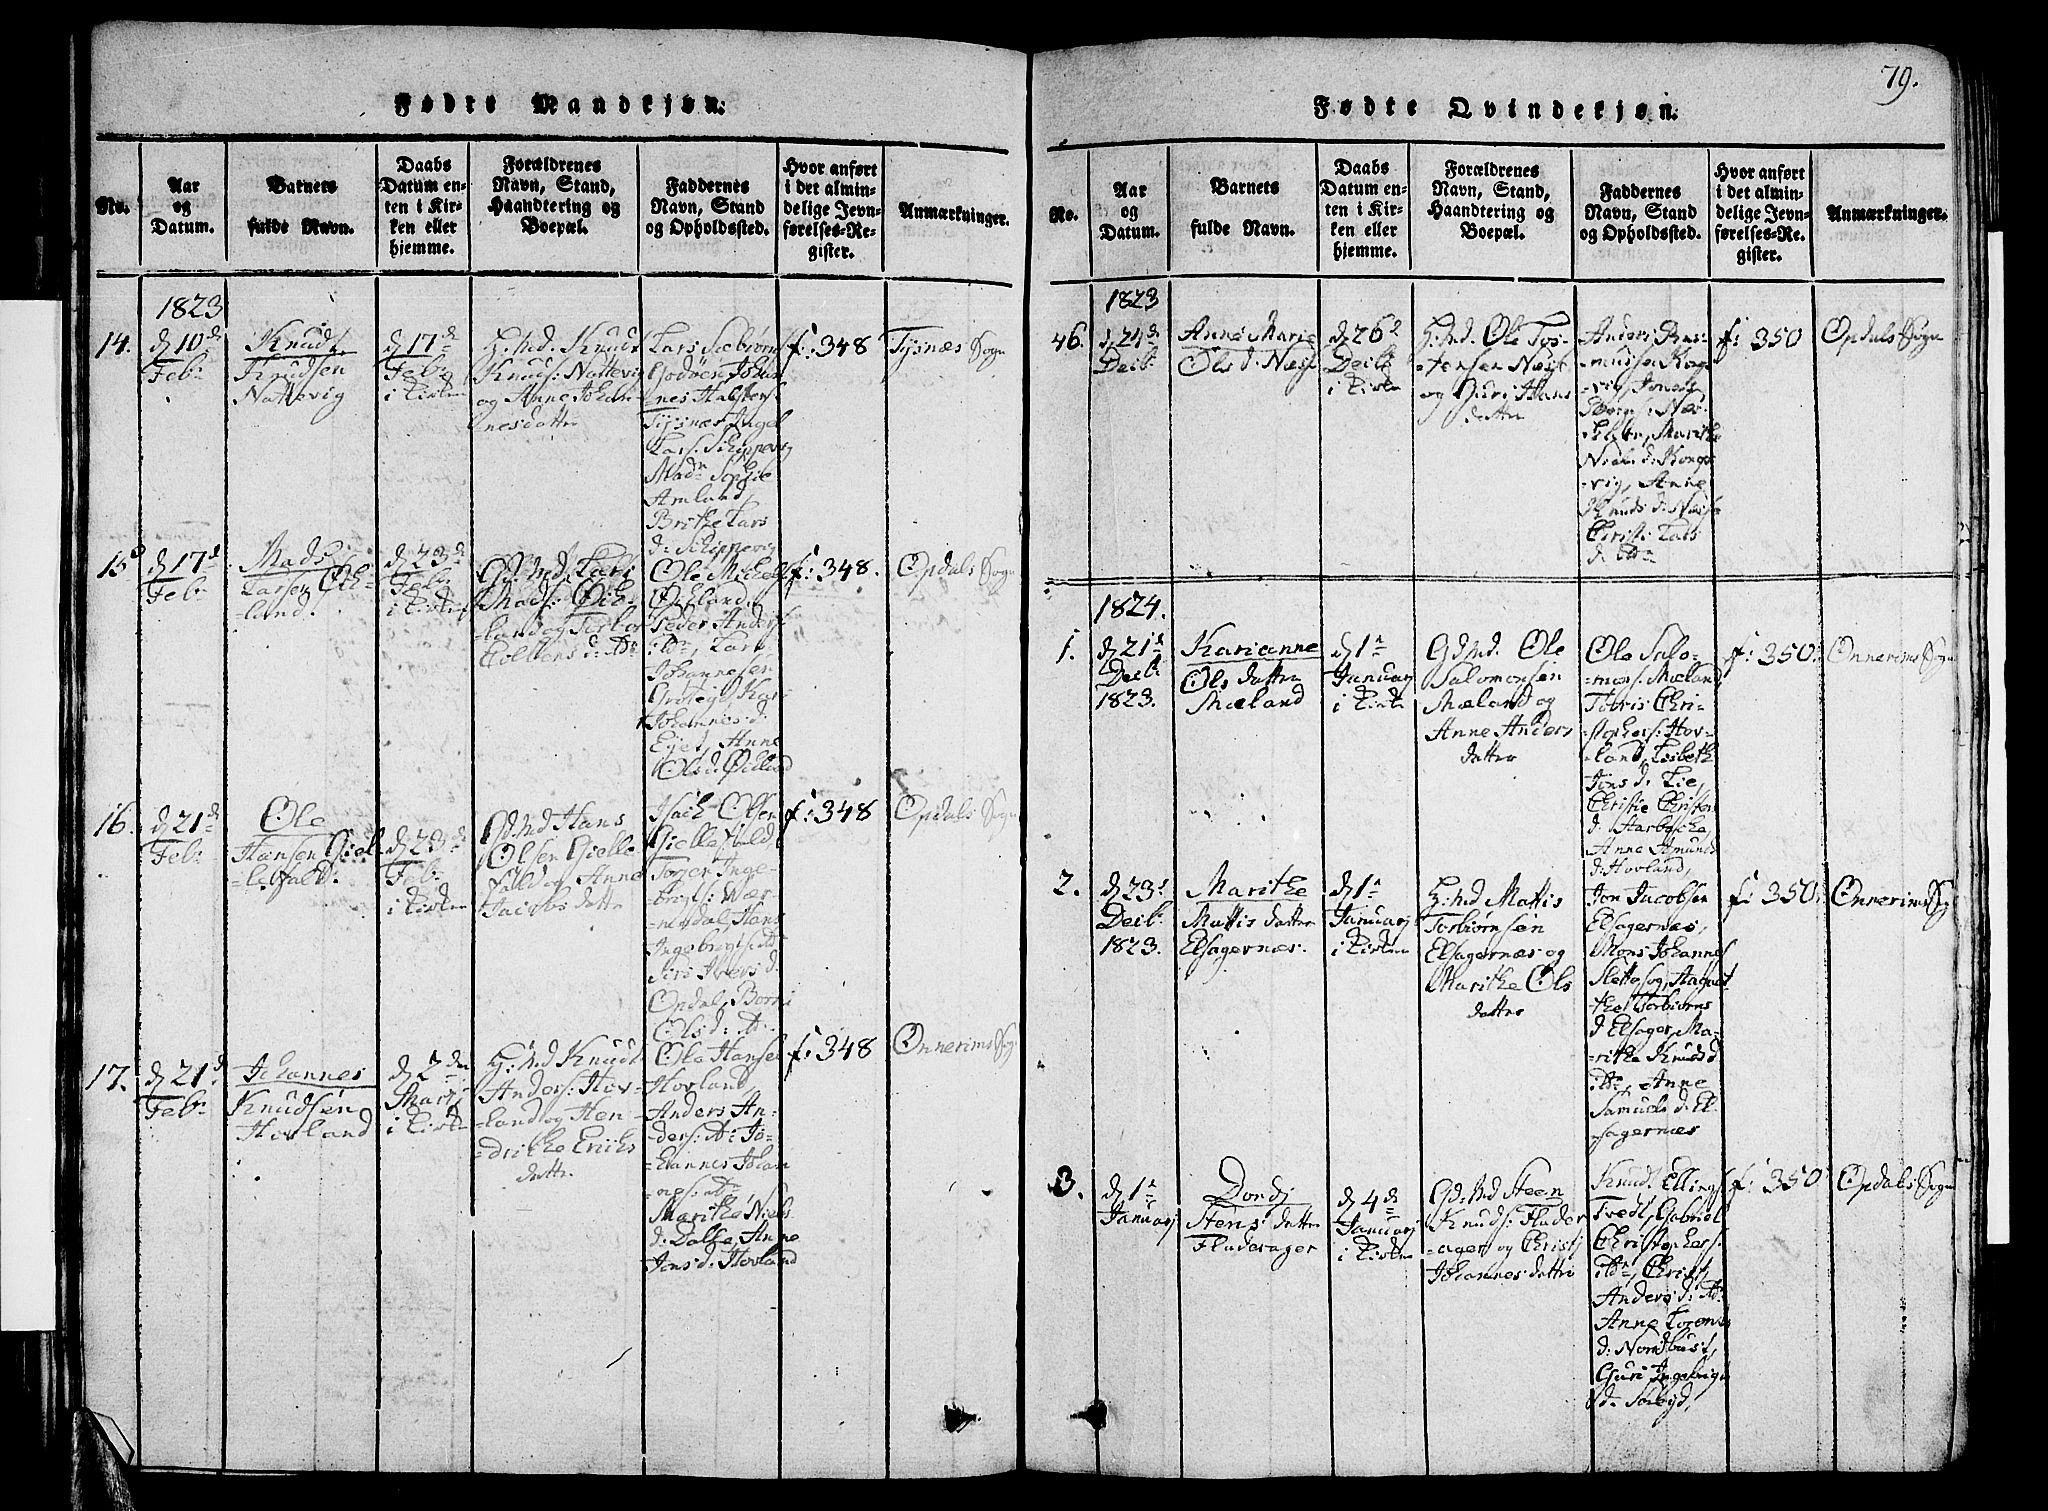 79.
Fødte Mandkjøn.
No.
Aar
og
Datum.
Barnets
fulde Navn.
Daabs
Datum en-
ten i Kir-
ken eller
hjemme.
Forældrenes
Navn, Stand,
Haandtering og
Boepæl.
Faddernes
Navn, Stand
og Opholdssted.
Hvor anført
i det almin-
delige Jevn-
førelses-Re-
gister.
Anmærkninger.
1823
14.
d 10de
Febr
Knud
Knudsen
Nattevig
d 17de
Febr
i Kirken
H:Md. Knud
Knuds: Nattevig
og Anne Johan-
nesdatter
Lars
Godøen, Johan
nes Halstens:
Tysnæs, Ingel
Lars: Skippevig
Madm Sophie
Amland,
Brithe Lars
d: Skippevig
f: 348
Tysnæs Sogn
15
d 17de
Febr
Mads
Larsen Øch-
-land.
d 23de
Febr
i Kirken
Gd:Md. Lars
Mads:
-land og
Ole Michels
Øcland,
Peder Anders
ibm, Lars
Johannesen
Kari
Johannes d:
Eyet, Anne
Ols d: Øcland
f: 348.
Opdals Sogn
16.
d 21de
Febr
Ole
Hansen Giel-
-lefald.
d 23de
Febr
i Kirken
Gd:Md Hans
Olsen Gielle
fald og Anne
Jacobs datter
Isach Olsen
Giellefald,
Torger Inge-
brigts: Wær-
-nesdal, Hans
Ingebrigts:
Ivers d:
Opdal,
Ols d:
f: 348
Opdals Sogn
17.
d 21de
Febr
Johannes
Knudsen
Hovland
d 2den
Marti
i Kirken
H:Md Knud
Anders: Hov-
-land og Hen-
-drikke Erichs
datter
Ole Hansen
Hovland,
Anders An-
ders: Jo-
-hannes Johan
Marithe Niels
d: Dalse, Anne
Jens d: Hovland
f: 348
Onnerims Sogn
Fødte Qvindekjøn.
No.
Aar
og
Datum.
Barnets
fulde Navn.
Daabs
Datum en-
ten i Kir-
ken eller
hjemme.
Forældrenes
Navn, Stand,
Haandtering og
Boepæl.
Faddernes
Navn, Stand
og Opholdssted.
Hvor anført
i det almin-
delige Jevn-
førelses-Re-
gister.
Anmærkninger.
1823
46.
d 21de
Decbr
Anne Marie
Ols d: Næse
d 26d
Decbr
i Kirken
H:Md. Ole Tos-
-tensen Næse
og Guri Hans
datter
Anders Ras-
-mussen Konge
-vig,
Marithe
Niels d: Konge
-vig, Anne
Knuds d: Næse
Christi Lars
d: ibm
f: 350
Opdals Sogn
1824.
1.
d 21de
Decbr
1823.
Karianne
Ols datter
Mæland
d 1te
Januarj
i Kirken
Gd:Md. Ole
Salomonsen
Mæland og
Anne Anders
datter
Ole Salo-
-mons: Mæland,
Tobris Chri-
-stophers: Hov-
-land, Lisbeth
Jons d: Lie,
Christie Christen
d:
Anne Amunds
d: Hovland,
f: 350.
Onnerims Sogn
2.
d 23d
Decbr
1823.
Marithe
Mattis datter
Elsagernæs.
d 1te
Januarj
i Kirken
H:Md Mattis
Torbiørnsen
Elsagernæs og
Marithe Ols
datter
Jon Jacobsen
Elsagernæs,
Mons Johannes
Slettesog, Magret-
-the Torbiørns
d: Elsager, Ma-
-rithe Knuds d
ibm, Anne
Samuels d: El-
-sagernæs
f: 350.
Onnerims Sog
3.
d 1te
Januarj
Dordj
Stens datter
Fluderager
d 4de
Januarj
i Kirken
Gd:Md Steen
Knuds: Fluder
-ager og Christj
Johannes datter
Knud Ellings
Tvedt, Gabriel
Christophers:
ibm, Christj
Anders d:
Anne Lorents
d: Nordhust,
Guri Ingebrigts
d:
f: 350
Opdals Sogn